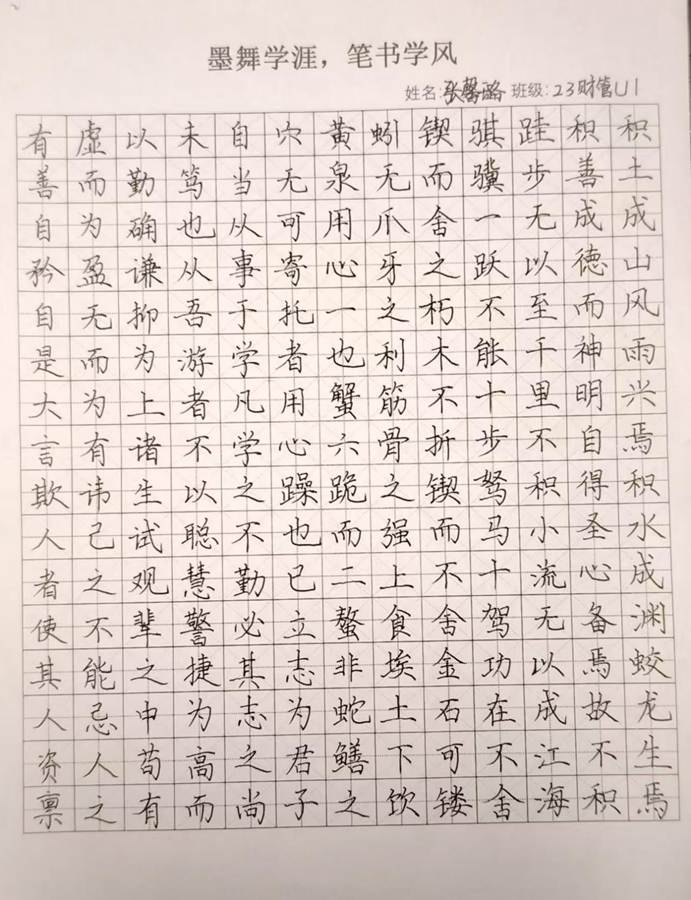 墨舞学涯，笔书学风
姓名:张馨璐 班级:23财管U1
积土成山风雨兴焉积水成渊蛟龙生焉
积善成德而神明自得圣心备焉故不积
跬步无以至千里不积小流无以成江海
骐骥一跃不能十步驽马十驾功在不舍
锲而舍之朽木不折锲而不舍金石可镂
蚓无爪牙之利筋骨之强上食埃土下饮
黄泉用心一也蟹六跪而二螯非蛇鳝之
穴无可寄托者用心躁也已立志为君子
自当从事于学凡学之不勤必其志之尚
未笃也从吾游者不以聪慧警捷为高而
以勤确谦抑为上诸生试观辈之中苟有
虚而为盈无而为有讳己之不能忌人之
有善自矜自是大言欺人者使其人资禀